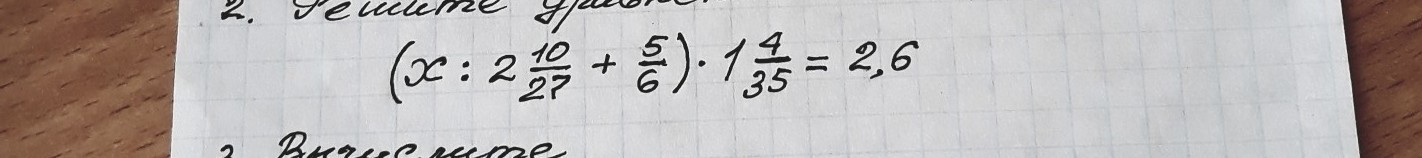 2. Решите
(x : 2 10/27 + 5/6) · 1 4/35 = 2,6
Вычислите